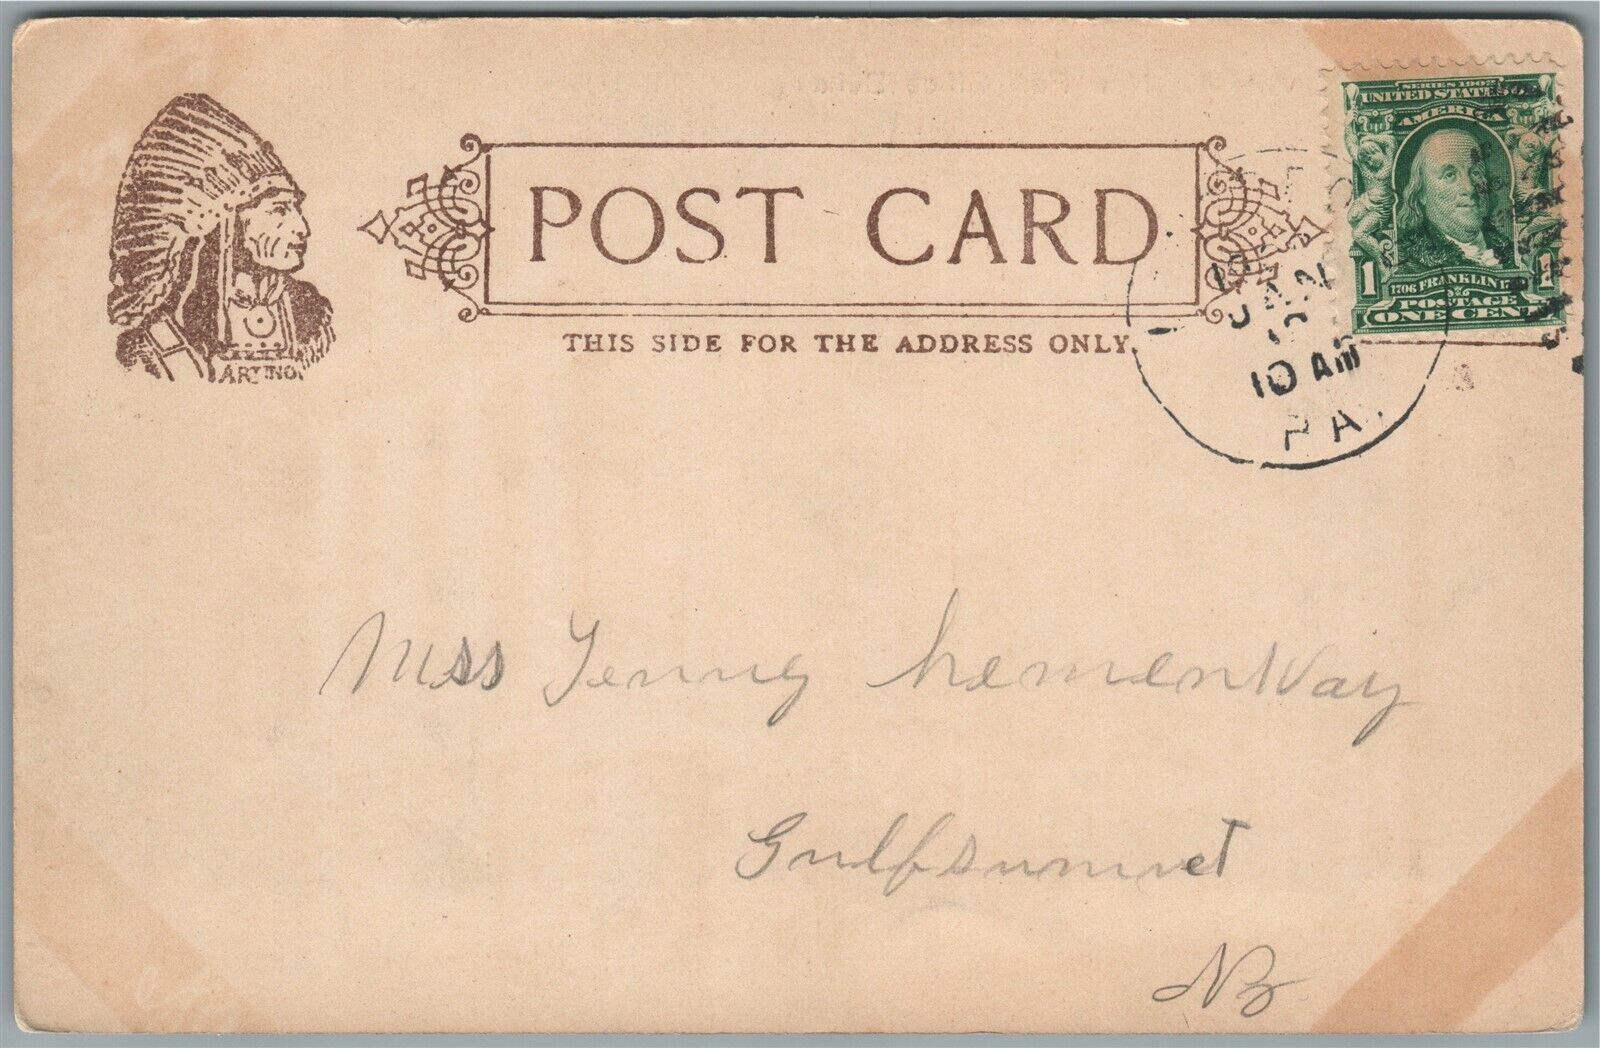 POST CARD
THIS SIDE FOR THE ADDRESS ONLY.
SERIES 1902
UNITED STATES
AMERICA
1 1
1706 FRANKLIN
POSTAGE
ONE CEN
JAN
10 AM
PA.
ARTINO.
Miss Jenny hemenWay
Gulfsumit
NY